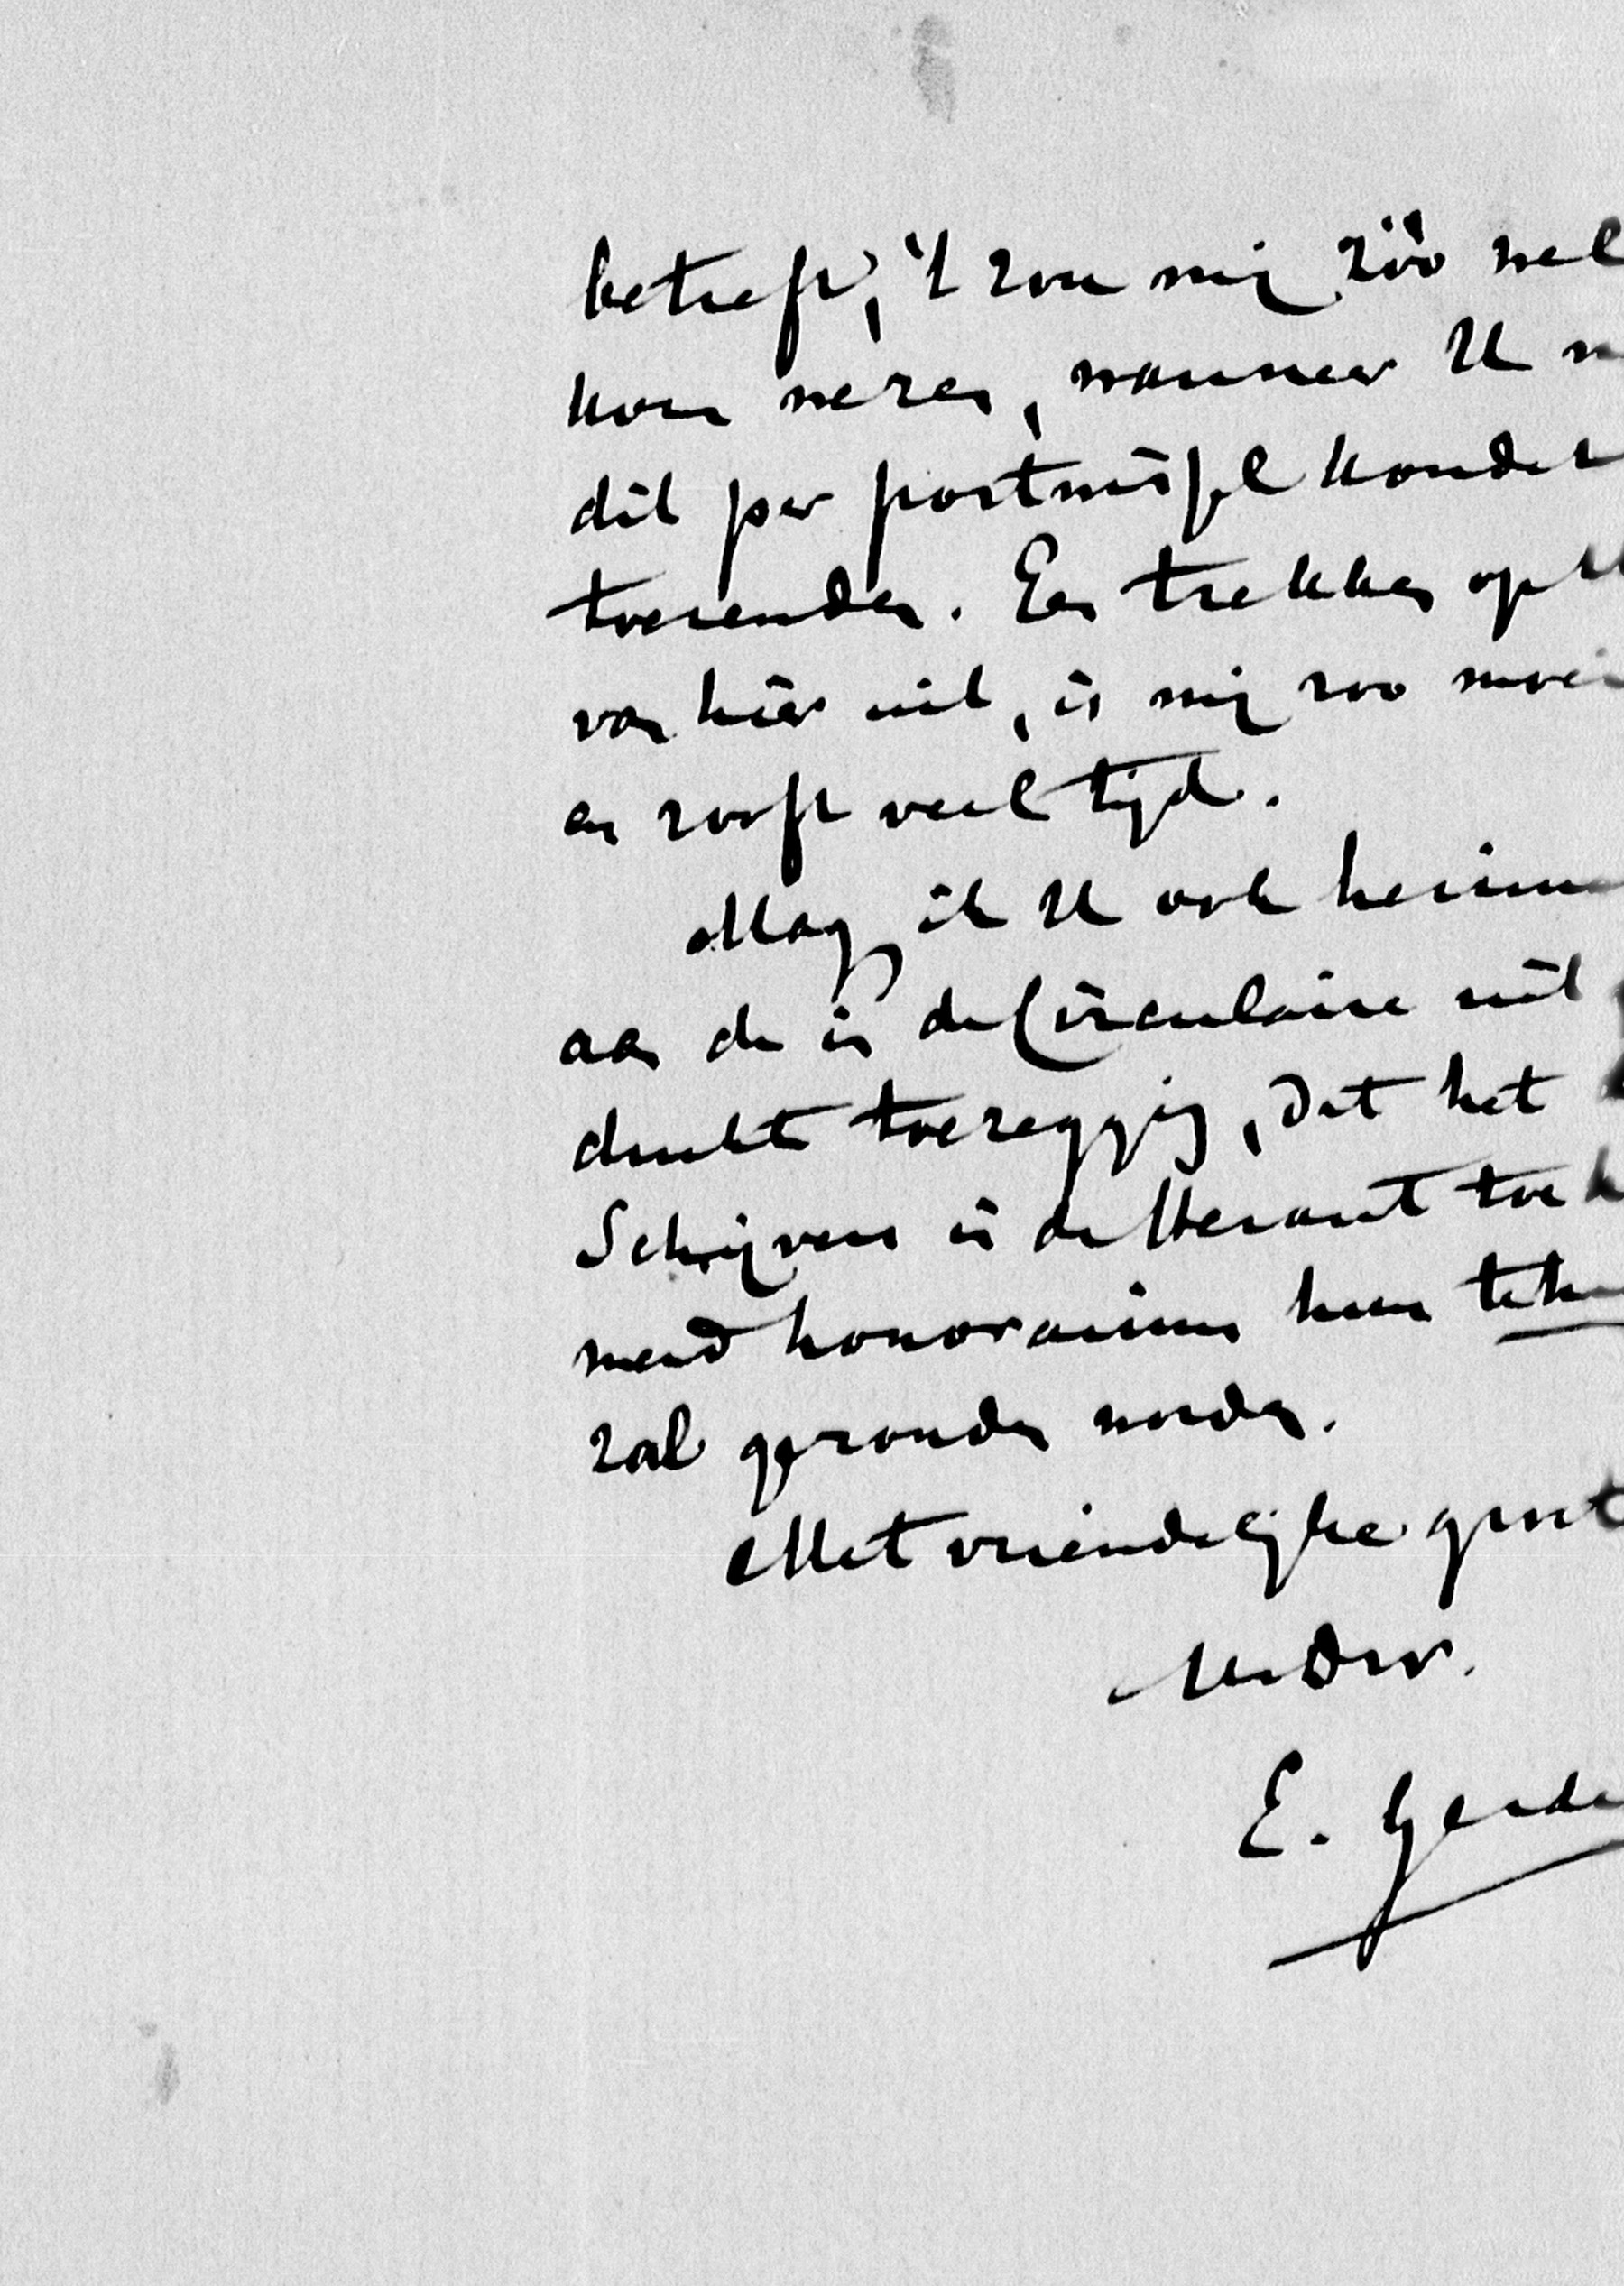 betreft, 't zou mij zóó wel
kom wezen, wanneer U m
dit per postwissel kondet
toezenden. Een trekken op U
van hier uit, is mij zoo moei
en rooft veel tijd.
Mag ik U ook herinne
aan de in de Circulaire uit
drukt toezegging, dat het
Schrijvers in de Heraut toe k
mend honorarium hun teh
zal gezonden worden.
Met vriendelijke groet
UwDw.
E. Gerde